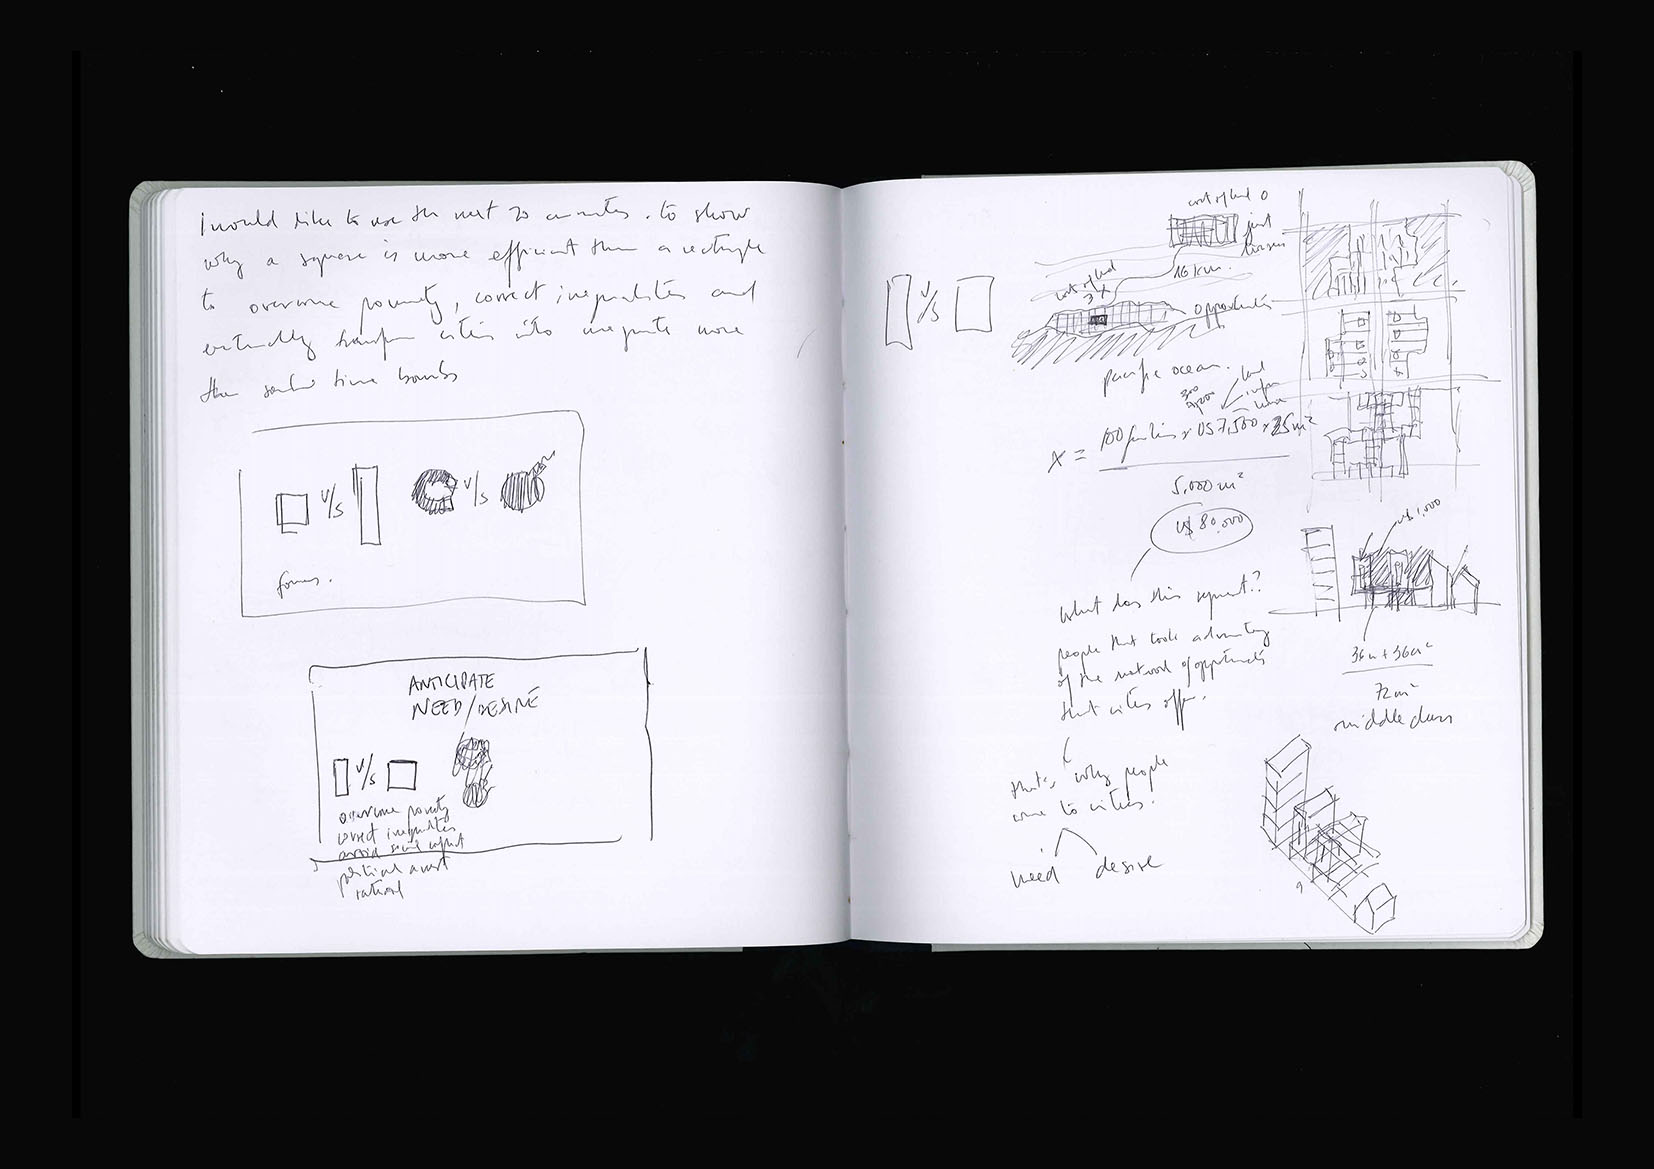 I would like to use the next 20 minutes. to show
why a square is more efficient than a rectangle
to overcome poverty, correct inequalities and
eventually transform cities into magnets more
than social time bombs
v/s
v/s
forms.
ANTICIPATE
NEED/DESIRE
v/s
overcome poverty
correct inequalities
avoid social conflict
political
rational
v/s
cost of land 0
just
houses
16 km.
cost of land
3x
opportunities
pacific ocean.
300
7,200
land
infra
house
X = 100 families x US 7,500 x 25m²
5,000 m²
U$ 80.000
What has this segment??
people that took advantage
of the network of opportunities
that cities offer.
that's why people
come to cities.
need desire
U$ 1,000
36m + 36m²
72m²
middle class